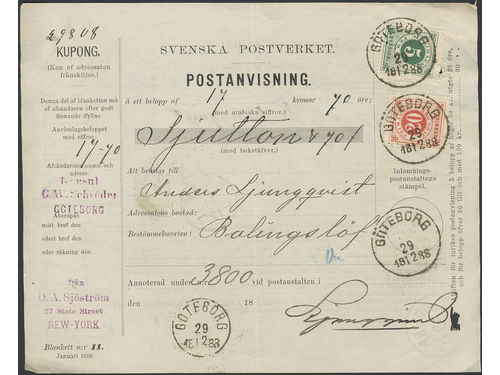 29808
KUPONG.
(Kan af adressaten
frånskiljas.)
Denna del af blanketten må
af afsändaren efter godt
finnande ifyllas.
Anvisningsbeloppet
med siffror.
17-70
Afsändarens namn och
adress:
Konsul
C.W. Schröder
GÖTEBORG
Åberopar
mitt bref den
edert bref den
eder räkning den
från
O. A. Sjöström
27 State Street
NEW-YORK
Blankett n:r 11.
Januari 1888.
SVENSKA POSTVERKET.
POSTANVISNING.
å ett belopp af 17 kronor 70 öre;
(med arabiska siffror.)
Sjutton & 70/
(med bokstäfver.)
Att betalas till
Anders Ljungqvist
Adressatens bostad:
Bestämmelseorten: Balingslöf
Annoterad under n:r 3800 vid postanstalten i
den 18
Inlemnings-
postanstaltens
stämpel.
5
GÖTEBORG
29
18 12 88
GÖTEBORG
29
18 12 88
GÖTEBORG
29
18 12 88
GÖTEBORG
29
18 12 88